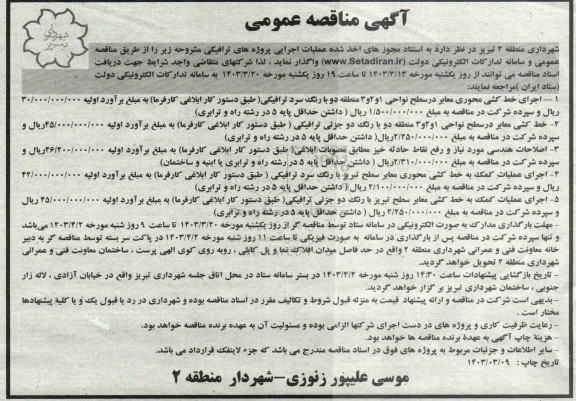 آگهی مناقصه عمومی
شهرداری تبریز
شهرداری منطقه ۲ تبریز در نظر دارد به استناد مجوز های اخذ شده عملیات اجرایی پروژه های ترافیکی مشروحه زیر را از طریق مناقصه
عمومی و سامانه تدارکات الکترونیکی دولت (www.Setadiran.ir) واگذار نماید ، لذا شرکتهای متقاضی واجد شرایط جهت دریافت
اسناد مناقصه می توانند از روز یکشنبه مورخه ۱۴۰۳/۳/۱۳ تا ساعت ۱۹ روز یکشنبه مورخه ۱۴۰۳/۳/۲۰ به سامانه تدارکات الکترونیکی دولت
(ستاد ایران )مراجعه نمایند:
۱ – اجرای خط کشی محوری معابر درسطح نواحی ۱و۲و۳ منطقه دو با رنگ سرد ترافیکی( طبق دستور کار ابلاغی کارفرما) به مبلغ برآورد اولیه ۳۰/۰۰۰/۰۰۰/۰۰۰
ریال و سپرده شرکت در مناقصه به مبلغ ۱/۵۰۰/۰۰۰/۰۰۰ ریال ( داشتن حداقل پایه ۵ در رشته راه و ترابری)
۲– خط کشی معابر درسطح نواحی ۱و۲و۳ منطقه دو با رنگ دو جزئی ترافیکی ( طبق دستور کار ابلاغی کارفرما) به مبلغ برآورد اولیه ۴۵/۰۰۰/۰۰۰/۰۰۰ریال و
سپرده شرکت در مناقصه به مبلغ ۲/۲۵۰/۰۰۰/۰۰۰ریال ( داشتن حداقل پایه ۵ در رشته راه و ترابری)
۳– اصلاحات هندسی مورد نیاز و رفع نقاط حادثه خیز مطابق مصوبات ابلاغی ( طبق دستور کار ابلاغی کارفرما) به مبلغ برآورد اولیه ۴۶/۲۰۰/۰۰۰/۰۰۰ریال و
سپرده شرکت در مناقصه به مبلغ ۲/۳۱۰/۰۰۰/۰۰۰ریال ( داشتن حداقل پایه ۵ در رشته راه و ترابری یا ابنیه و ساختمان)
۴– اجرای عملیات کمک به خط کشی محوری معابر سطح تبریز با رنگ سرد ترافیکی ( طبق دستور کار ابلاغی کارفرما) به مبلغ برآورد اولیه ۴۲/۰۰۰/۰۰۰/۰۰۰
ریال و سپرده شرکت در مناقصه به مبلغ ۲/۱۰۰/۰۰۰/۰۰۰ ریال ( داشتن حداقل پایه ۵ در رشته راه و ترابری)
۵– اجرای عملیات کمک به خط کشی معابر سطح تبریز با رنگ دو جزئی ترافیکی (طبق دستور کار ابلاغی کارفرما) به مبلغ برآورد اولیه ۴۵/۰۰۰/۰۰۰/۰۰۰ ریال
و سپرده شرکت در مناقصه به مبلغ ۲/۲۵۰/۰۰۰/۰۰۰ ریال ( داشتن حداقل پایه ۵ در رشته راه و ترابری)
- مهلت بارگذاری مدارک به صورت الکترونیکی در سامانه ستاد توسط مناقصه گر از روز یکشنبه مورخه ۱۴۰۳/۳/۲۰ تا ساعت ۹ روز شنبه مورخه ۱۴۰۳/۴/۲ می‌باشد
و تنها سپرده شرکت در مناقصه پس از بارگذاری در سامانه به صورت فیزیکی تا ساعت ۱۱ روز شنبه مورخه ۱۴۰۳/۴/۲ در پاکت سر بسته توسط مناقصه گر به دبیر
خانه معاونت فنی و عمرانی شهرداری منطقه ۲ واقع در حد فاصل میدان افلاک نما و پل کابلی ، روبه روی کوی الهی پرست ، ساختمان معاونت فنی و عمرانی
شهرداری منطقه ۲ تحویل خواهد گردید.
- تاریخ بازگشایی پیشنهادات ساعت ۱۴:۳۰ روز شنبه مورخه ۱۴۰۳/۴/۲ در بستر سامانه ستاد در محل اتاق جلسه شهرداری تبریز واقع در خیابان آزادی ، لاله زار
جنوبی ، ساختمان شهرداری تبریز بر گزار خواهد گردید.
- بدیهی است شرکت در مناقصه و ارائه پیشنهاد قیمت به منزله قبول شروط و تکالیف مقرر در اسناد مناقصه بوده و شهرداری در رد یا قبول یک و یا کلیه پیشنهادها
مختار است .
- رعایت ظرفیت کاری و پروژه های در دست اجرای شرکتها الزامی بوده و مسئولیت آن به عهده برنده مناقصه خواهد بود.
- هزینه چاپ آگهی به عهده برنده مناقصه ها خواهد بود.
- سایر اطلاعات و جزئیات مربوط به پروژه های فوق در اسناد مناقصه مندرج می باشد که جزء لاینفک قرارداد می باشد.
تاریخ چاپ : ۱۴۰۳/۰۳/۰۹
موسی علیپور زنوزی–شهردار منطقه ۲